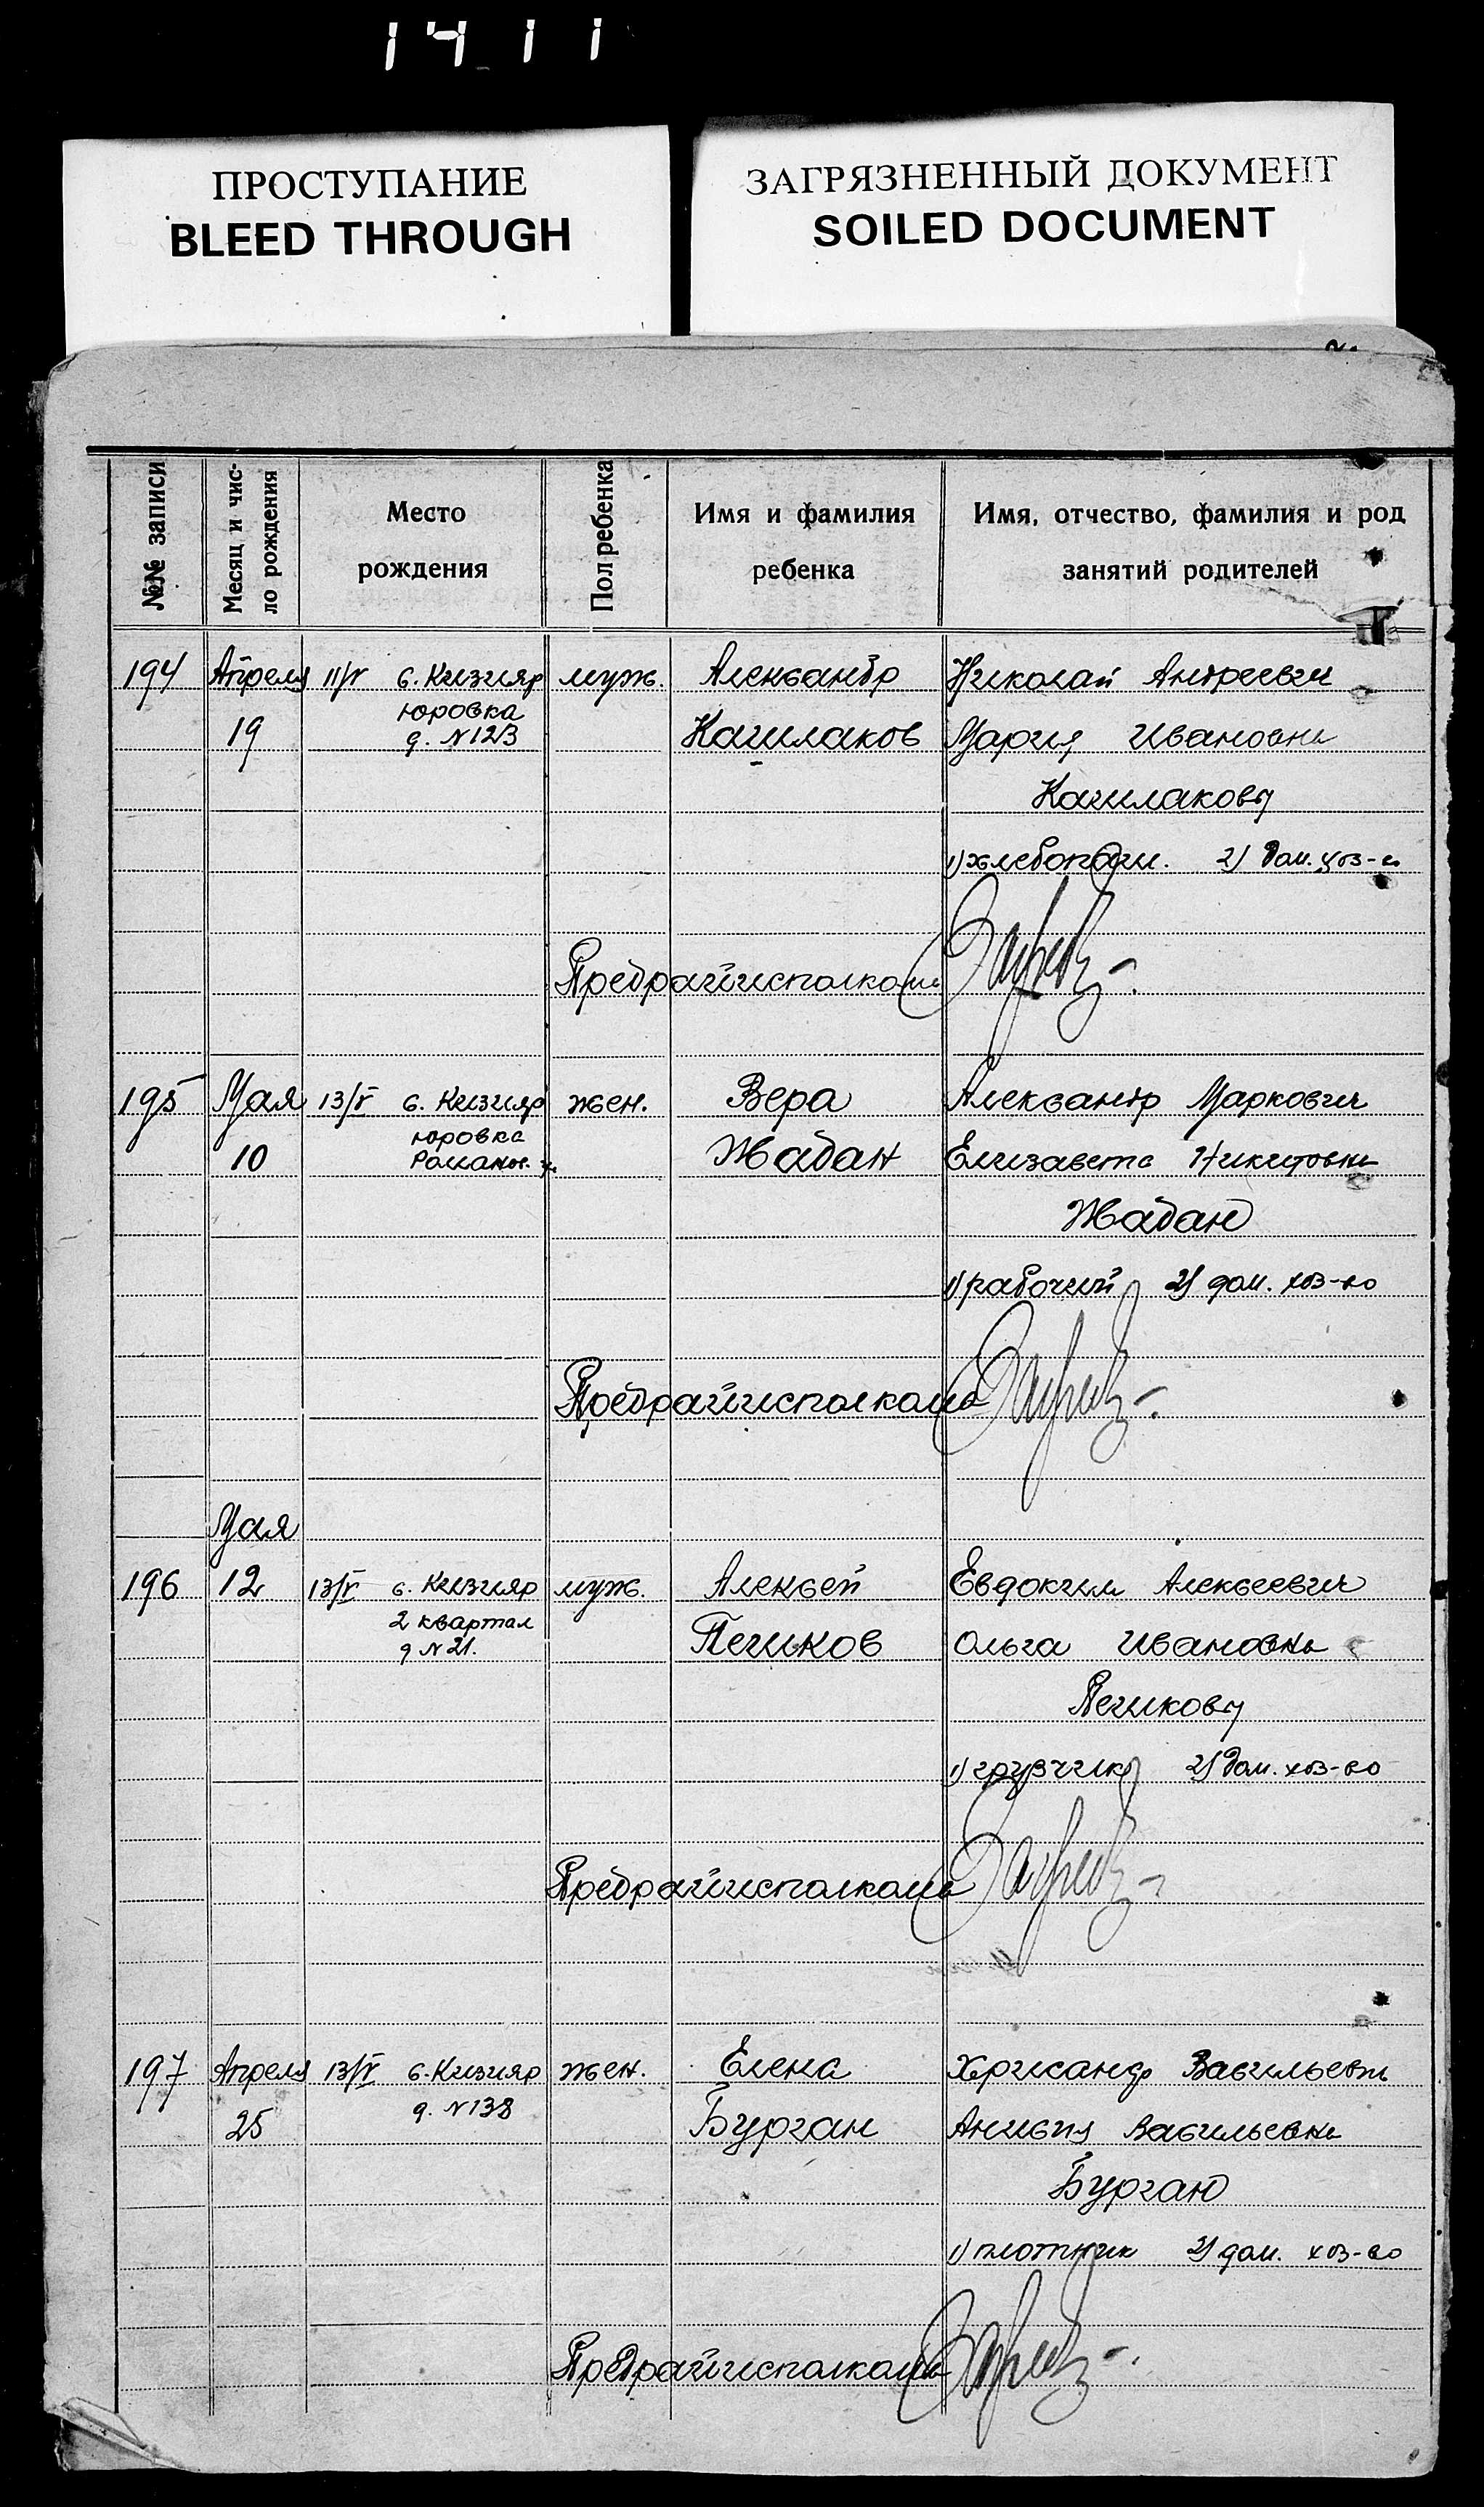 1411
ПРОСТУПАНИЕ
BLEED THROUGH
ЗАГРЯЗНЕННЫЙ ДОКУМЕНТ
SOILED DOCUMENT
№№ записи
Месяц и чис-
ло рождения
Место
рождения
Пол ребенка
Имя и фамилия
ребенка
Имя, отчество, фамилия и род
занятий родителей
194 Апреля 11/V с. Кизияр муж. Александр Николай Андреевич
юровка
19 д. N123 Мария Ивановна
1) хлебопаш. 2) дом. хоз-во
Предрайисполкома
195 Мая 13/V с. Кизияр жен. Вера Александр Маркович
юровка
10 Романов. Жадан Елизавета Никитовна
Жадан
1) рабочий 2) дом. хоз-во
Предрайисполкома
Мая
196 12 13/V с. Кизияр муж. Алексей Евдоким Алексеевич
2 квартал
д N 21. Ольга Ивановна
1) грузчик 2) дом. хоз-во
Предрайисполкома
197 Апреля 13/V с. Кизияр жен. Елена Хрисанф Васильевич
д. N138
25 Бурган Васильевна
Бурган
1) плотник 2) дом. хоз-во
Предрайисполкома